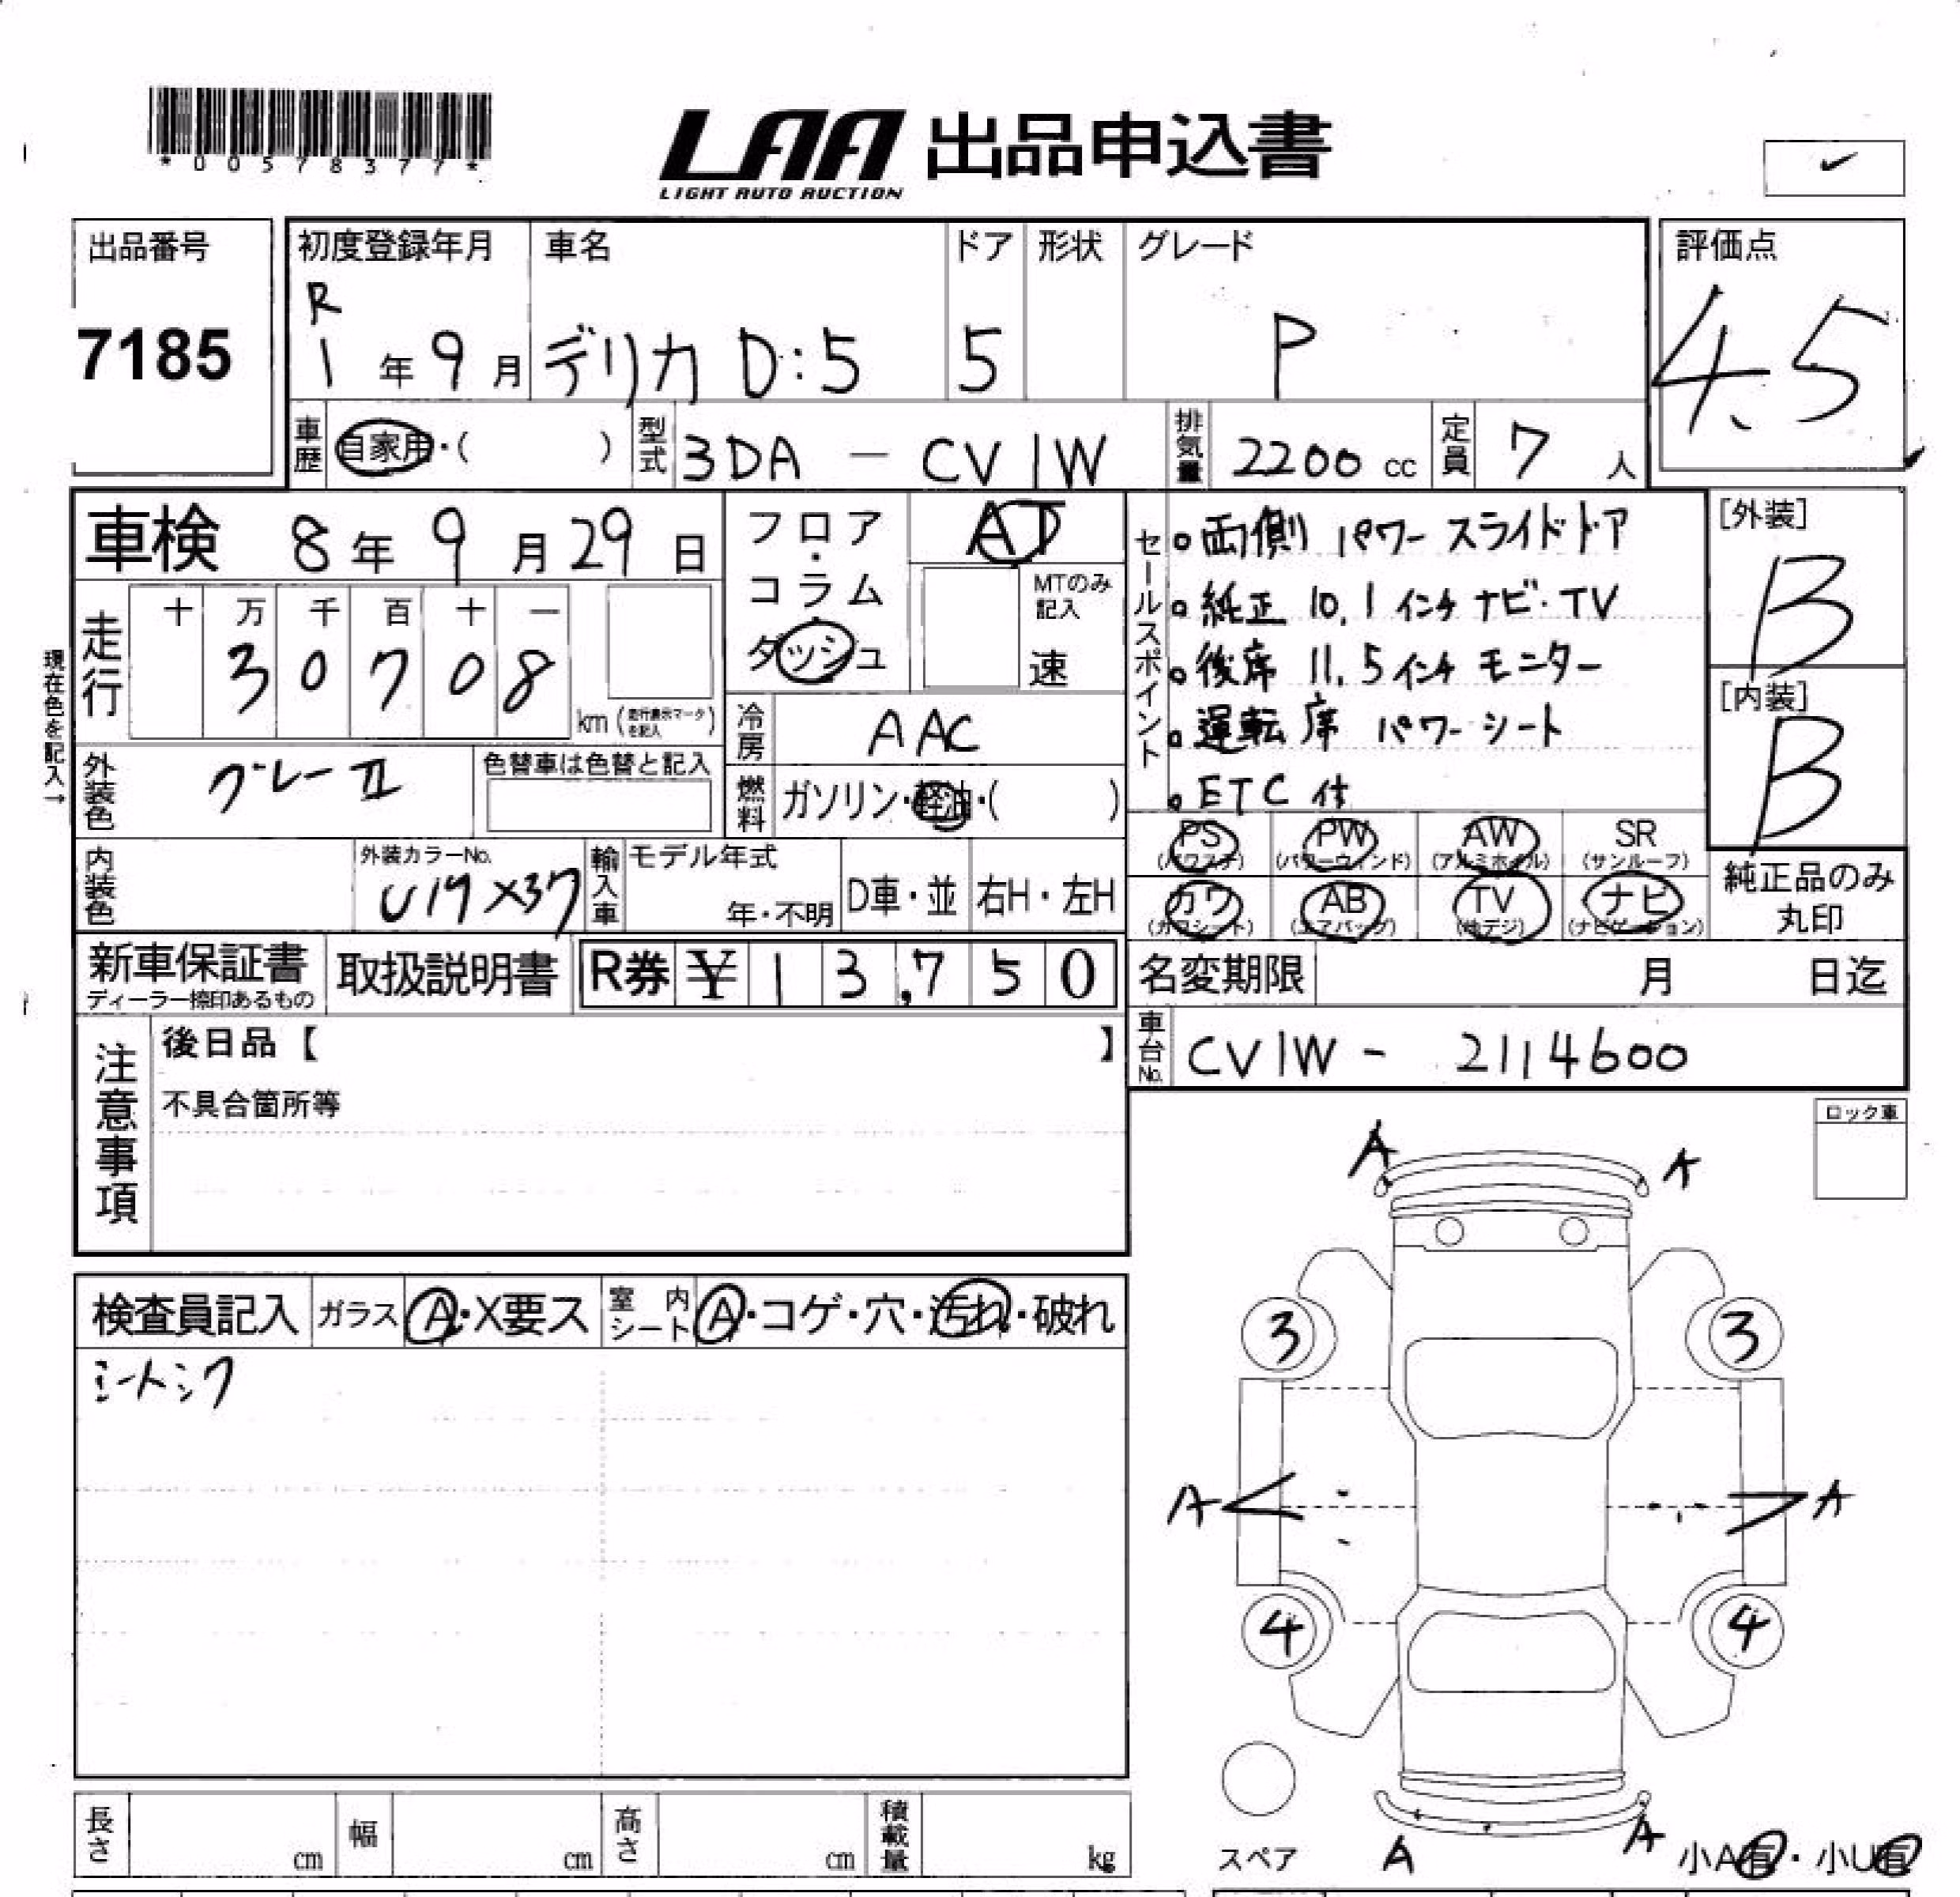 *00578377*
LAA 出品申込書
LIGHT AUTO AUCTION
✓
出品番号
7185
初度登録年月
R
1 年 9 月
車名
デリカ D:5
ドア
5
形状
グレード
P
評価点
4.5
車歴 自家用・( )
型式 3DA - CV1W
排気量 2200 cc
定員 7 人
車検 8 年 9 月 29 日
フロア・コラム・ダッシュ
AT
MTのみ記入
速
セールスポイント
。両側 パワー スライドドア
。純正 10.1 インチ ナビ・TV
。後席 11.5 インチ モニター
。運転席 パワーシート
。ETC 付
[外装]
B
[内装]
B
現在色を記入→
走行
十 万 千 百 十 一
3 0 7 0 8
km (走行表示マークを記入)
冷房 AAC
外装色 グレーⅡ
色替車は色替と記入
燃料 ガソリン・軽油・( )
PS (パワステ)
PW (パワーウィンド)
AW (アルミホイル)
SR (サンルーフ)
カワ (カワシート)
AB (エアバッグ)
TV (地デジ)
ナビ (ナビゲーション)
純正品のみ
丸印
内装色
外装カラーNo.
U17 X37
輸入車
モデル年式
年・不明
D車・並
右H・左H
新車保証書
ディーラー捺印あるもの
取扱説明書
R券 ¥ 1 3,7 5 0
名変期限 月 日迄
車台No. CV1W - 2114600
注意事項
後日品【 】
不具合箇所等
ロック車
検査員記入
ガラス A・X要ス
室内シート A・コゲ・穴・汚れ・破れ
シートシワ
A A
3 3
A A
4 4
A A
スペア
小A有・小U有
長さ cm
幅 cm
高さ cm
積載量 kg